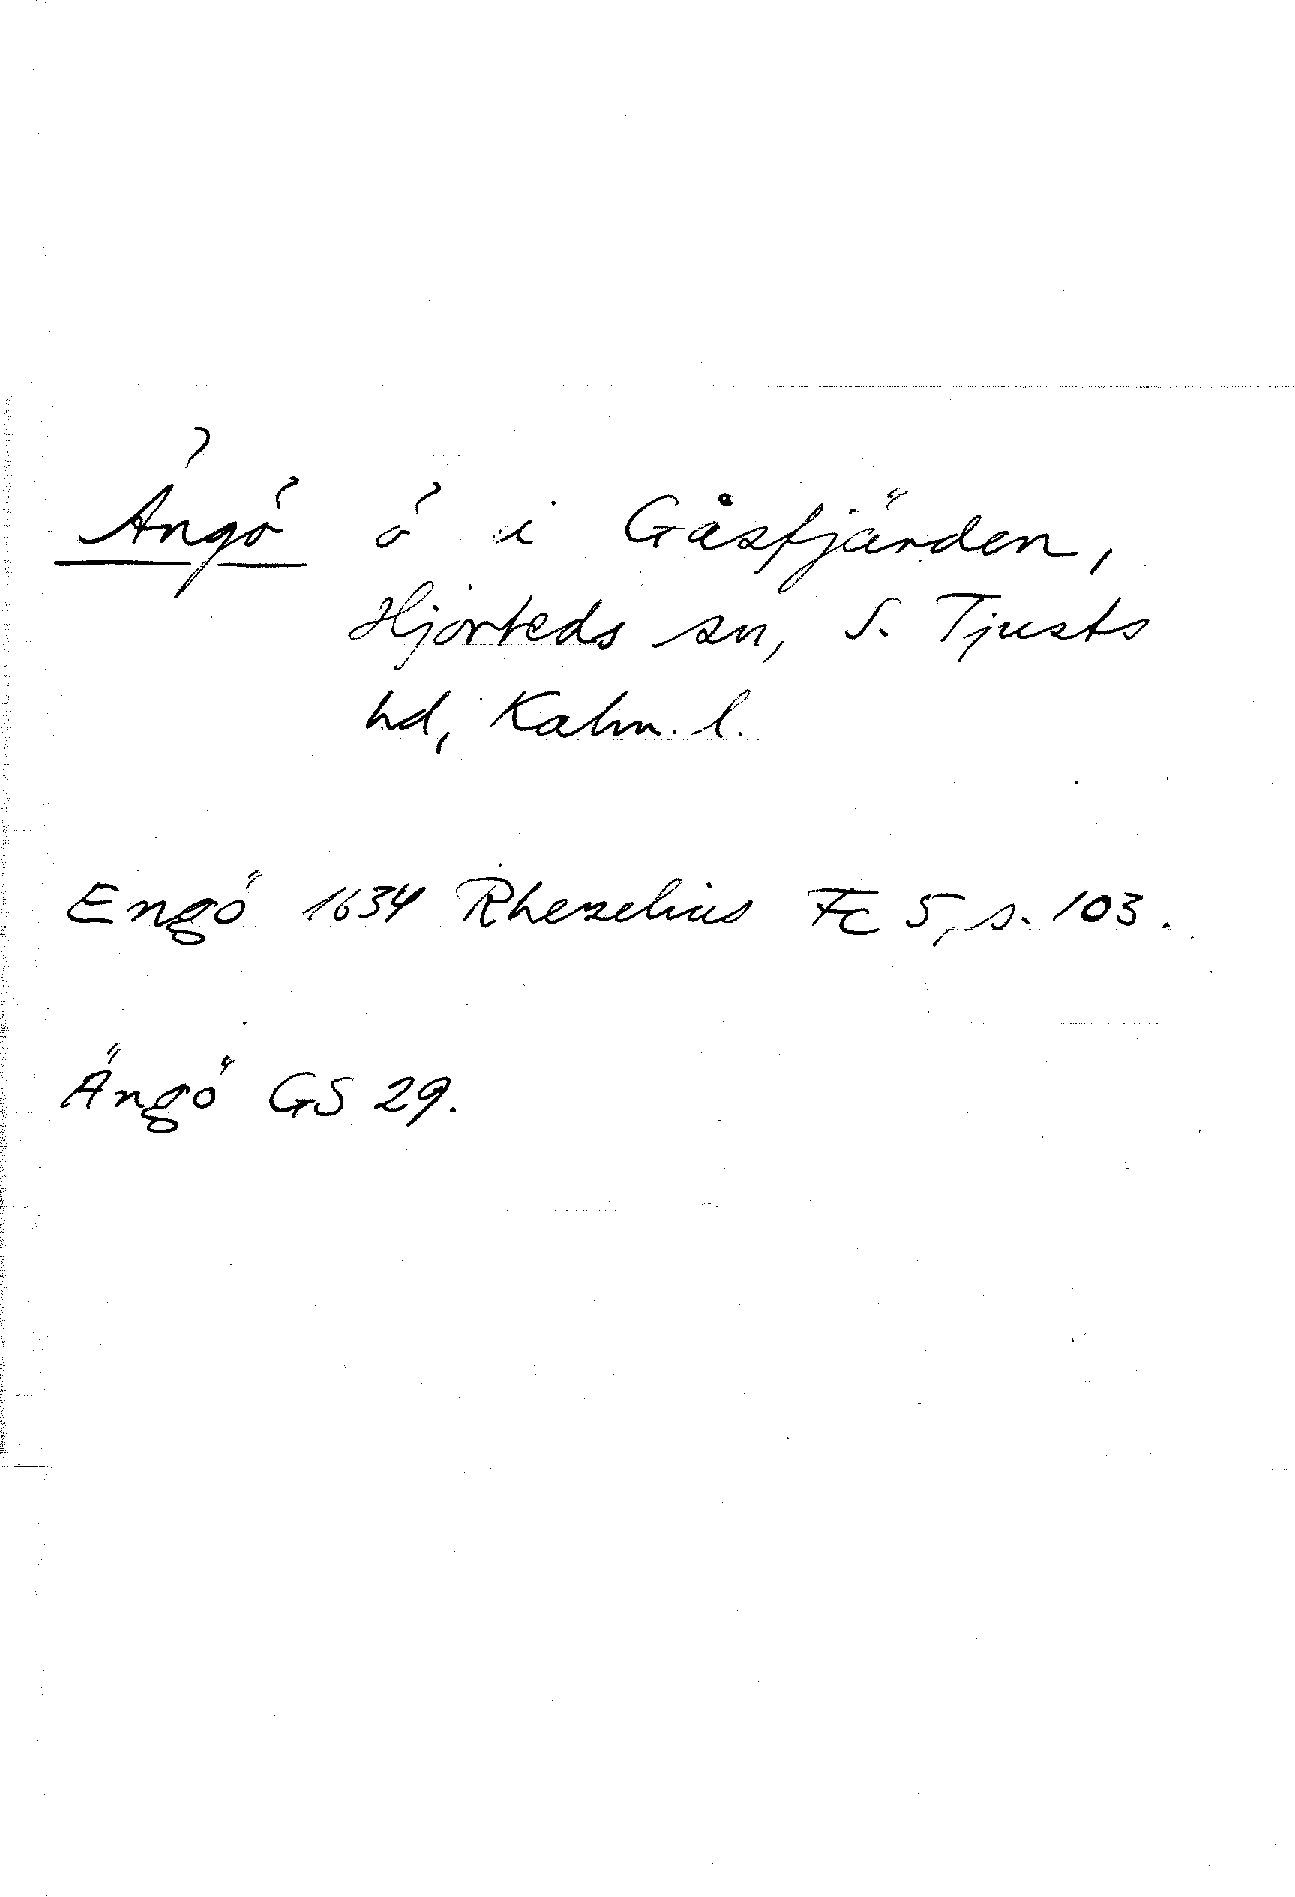 Ängö ö i Gåsfjärden,
Hjorteds sn, S. Tjusts
hd, Kalm. l.
Engö 1634 Rhezelius Fc 5, s. 103.
Ängö GS 29.